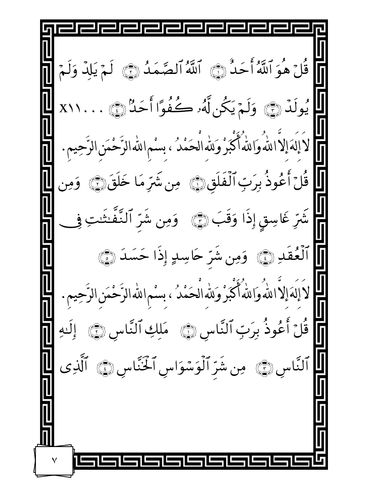 قُلْ هُوَ ٱللَّهُ أَحَدٌ ﴿١﴾ ٱللَّهُ ٱلصَّمَدُ ﴿٢﴾ لَمْ يَلِدْ وَلَمْ
يُولَدْ ﴿٣﴾ وَلَمْ يَكُن لَّهُۥ كُفُوًا أَحَدٌۢ ﴿٤﴾ ...x١١
لَا إِلَهَ إِلاَّ اللهُ وَاللهُ أَكْبَرْ وَلِلّٰهِ الْحَمْدُ ، بِسْمِ اللهِ الرَّحْمٰنِ الرَّحِيمِ.
قُلْ أَعُوذُ بِرَبِّ ٱلْفَلَقِ ﴿١﴾ مِن شَرِّ مَا خَلَقَ ﴿٢﴾ وَمِن
شَرِّ غَاسِقٍ إِذَا وَقَبَ ﴿٣﴾ وَمِن شَرِّ ٱلنَّفَّـٰثَـٰتِ فِى
ٱلْعُقَدِ ﴿٤﴾ وَمِن شَرِّ حَاسِدٍ إِذَا حَسَدَ ﴿٥﴾
لَا إِلَهَ إِلاَّ اللهُ وَاللهُ أَكْبَرْ وَلِلّٰهِ الْحَمْدُ ، بِسْمِ اللهِ الرَّحْمٰنِ الرَّحِيمِ.
قُلْ أَعُوذُ بِرَبِّ ٱلنَّاسِ ﴿١﴾ مَلِكِ ٱلنَّاسِ ﴿٢﴾ إِلَـٰهِ
ٱلنَّاسِ ﴿٣﴾ مِن شَرِّ ٱلْوَسْوَاسِ ٱلْخَنَّاسِ ﴿٤﴾ ٱلَّذِى
٧